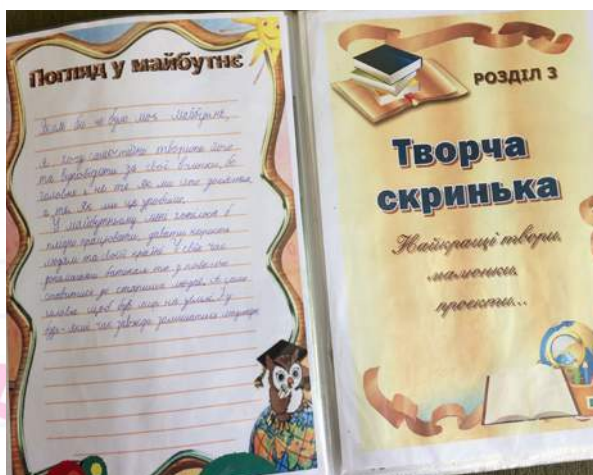 Погляд у майбутнє
Яким би не було моє майбутнє,
я хочу самостійно творити його
та відповідати за свої вчинки, бо
головне є не те, як ми його
а те, як ми це зробили.
У майбутньому мені хотілося б
плідно працювати, давати користь
людям та своїй країні. У свій час
допомагати батькам та з повагою
ставитися до старших людей. А саме
головне щоб був мир на землі і у
будь-який час завжди залишатися людиною
РОЗДІЛ 3
Творча
скринька
Найкращі твори,
малюнки,
проекти...